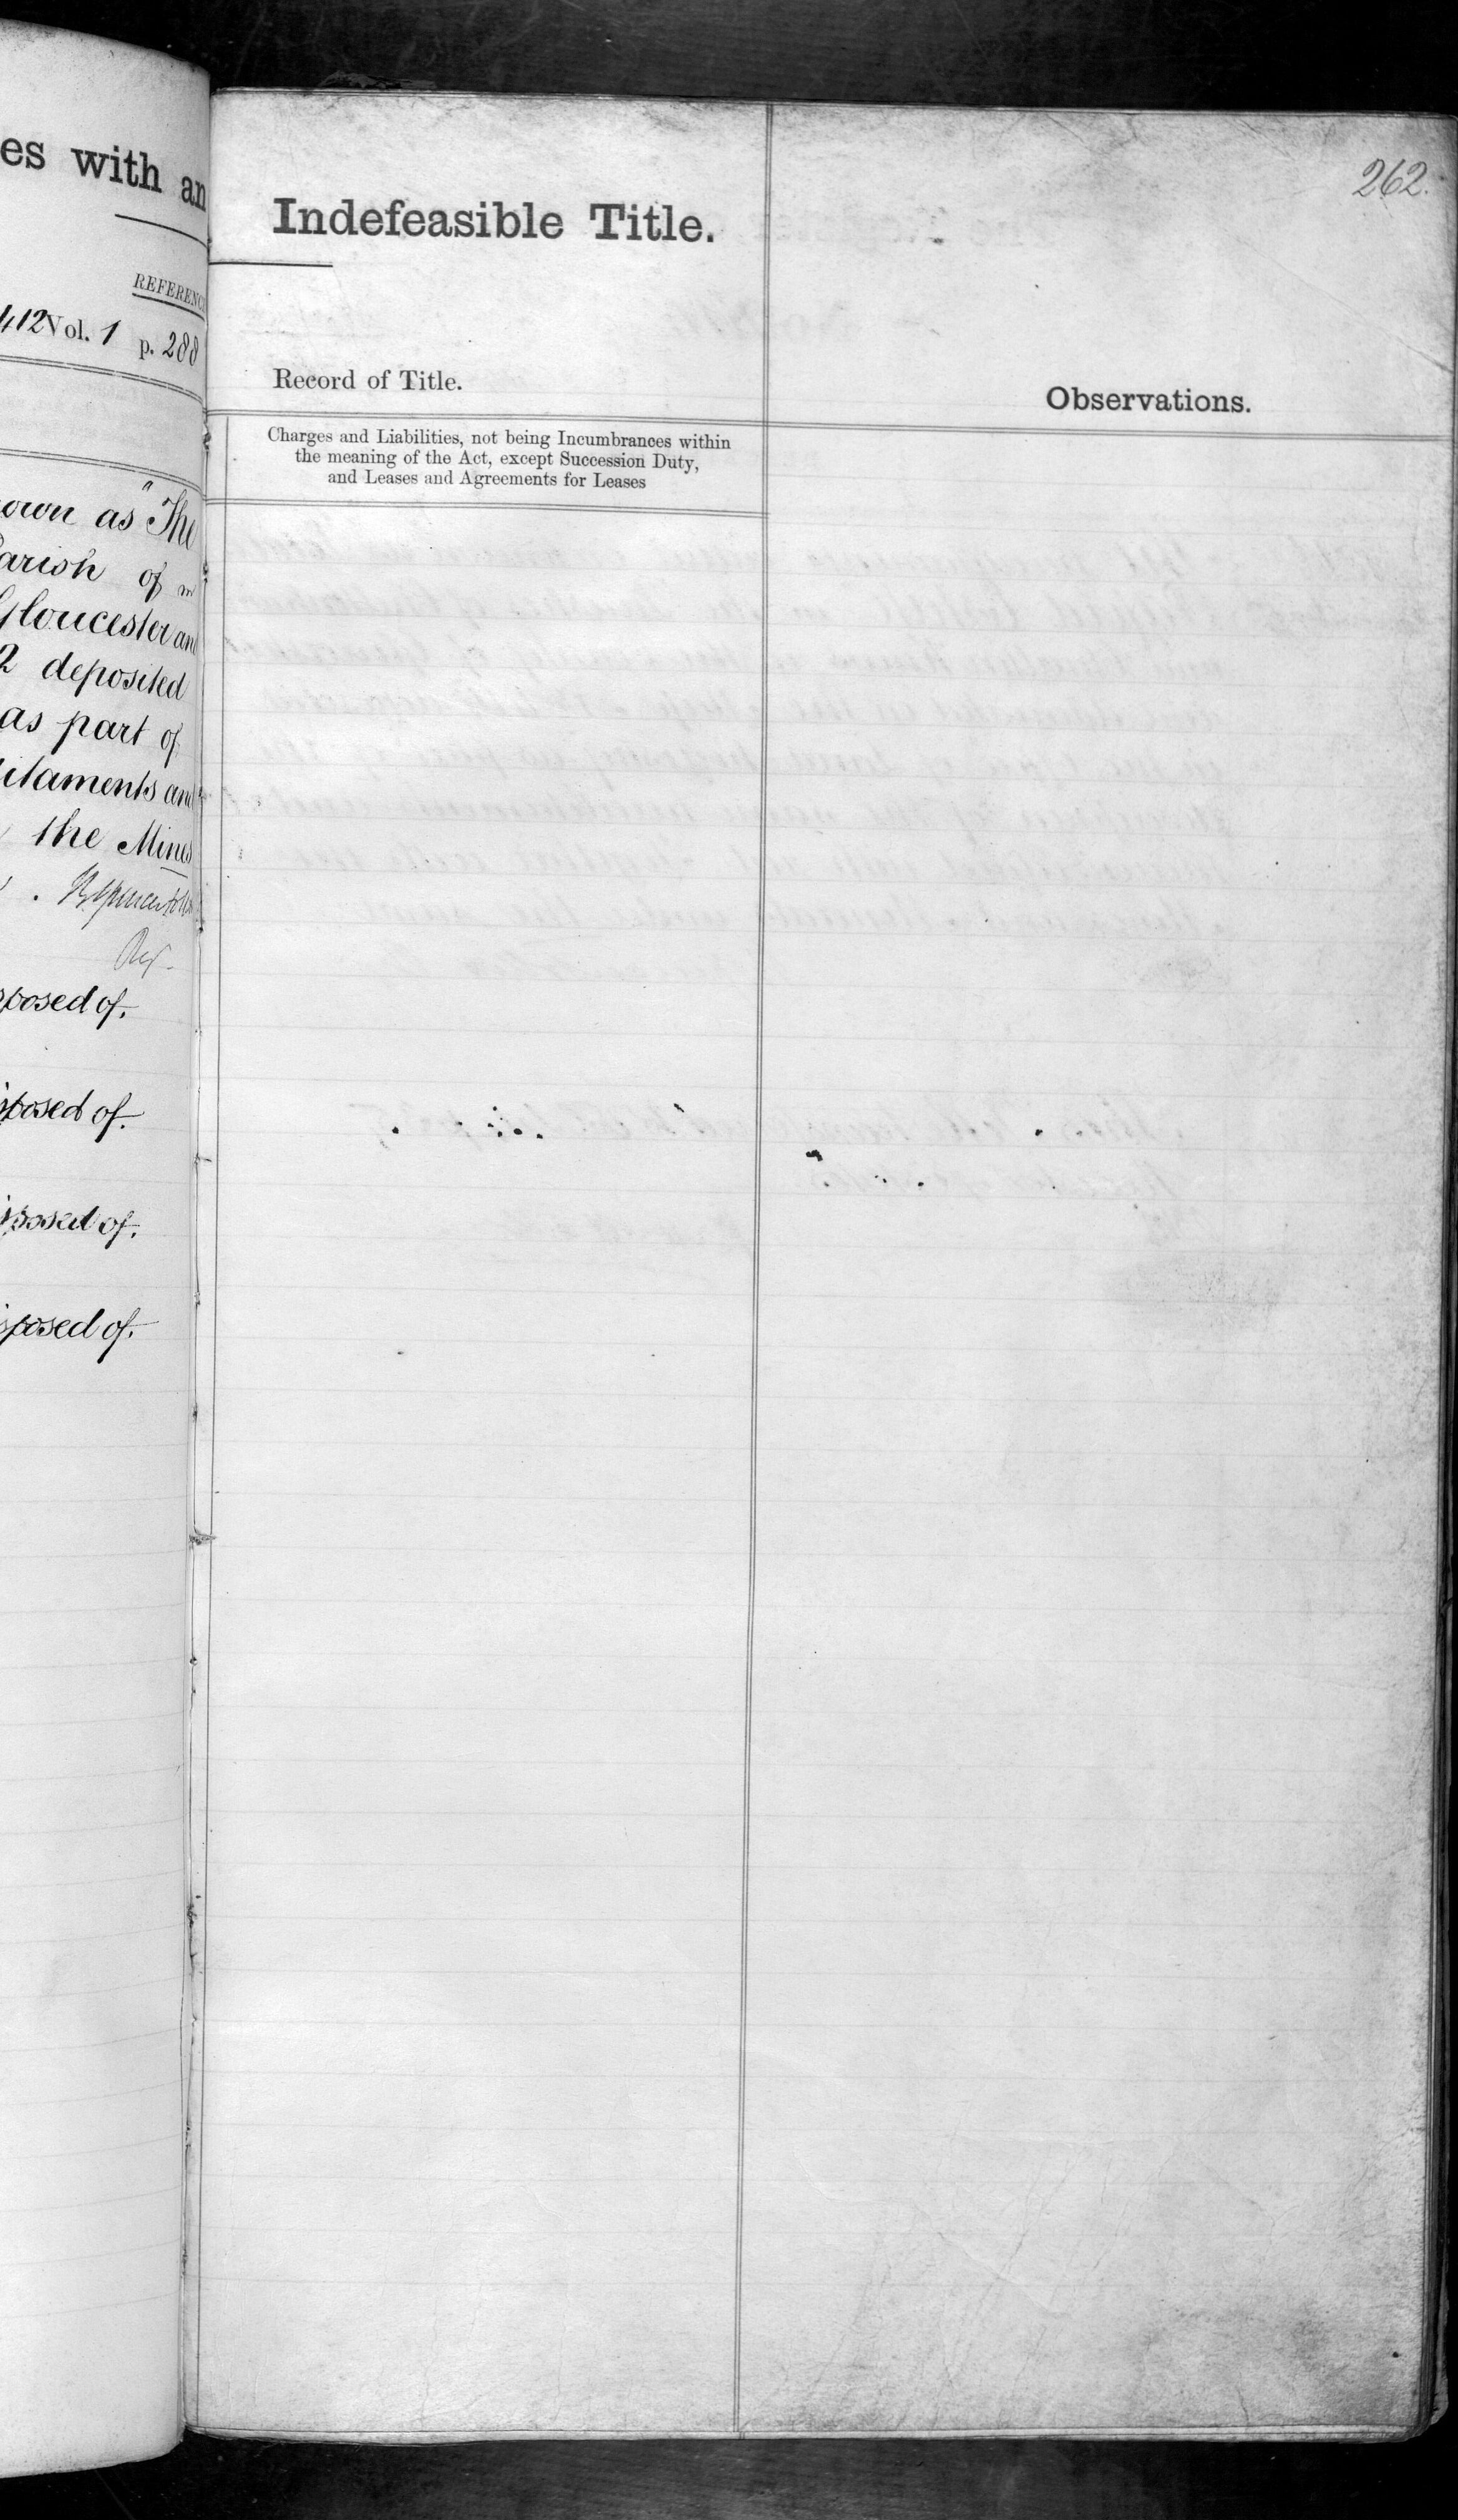 es with an
REFERENC
412 Vol. 1 p. 288
own as "The
arish of
Gloucester and
2 deposited
as part of
itaments and
the Mines
Reg.
posed of.
posed of.
posed of.
sposed of.
262.
Indefeasible Title.
Record of Title.
Observations.
Charges and Liabilities, not being Incumbrances within
the meaning of the Act, except Succession Duty,
and Leases and Agreements for Leases